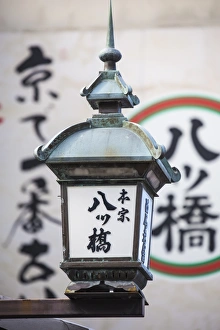 京で一番古い
本家
八ツ橋
八ツ橋